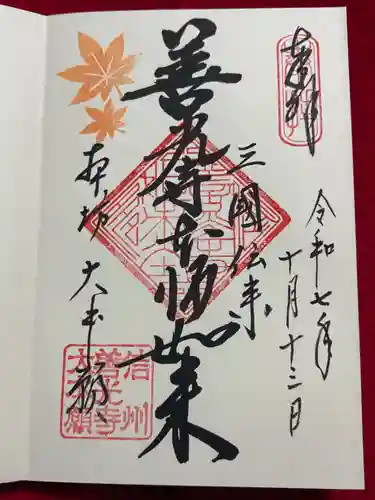 奉拝
令和七年
十月十三日
三國伝来
善光寺如来
本坊 大本願
信州
善光寺
大本願